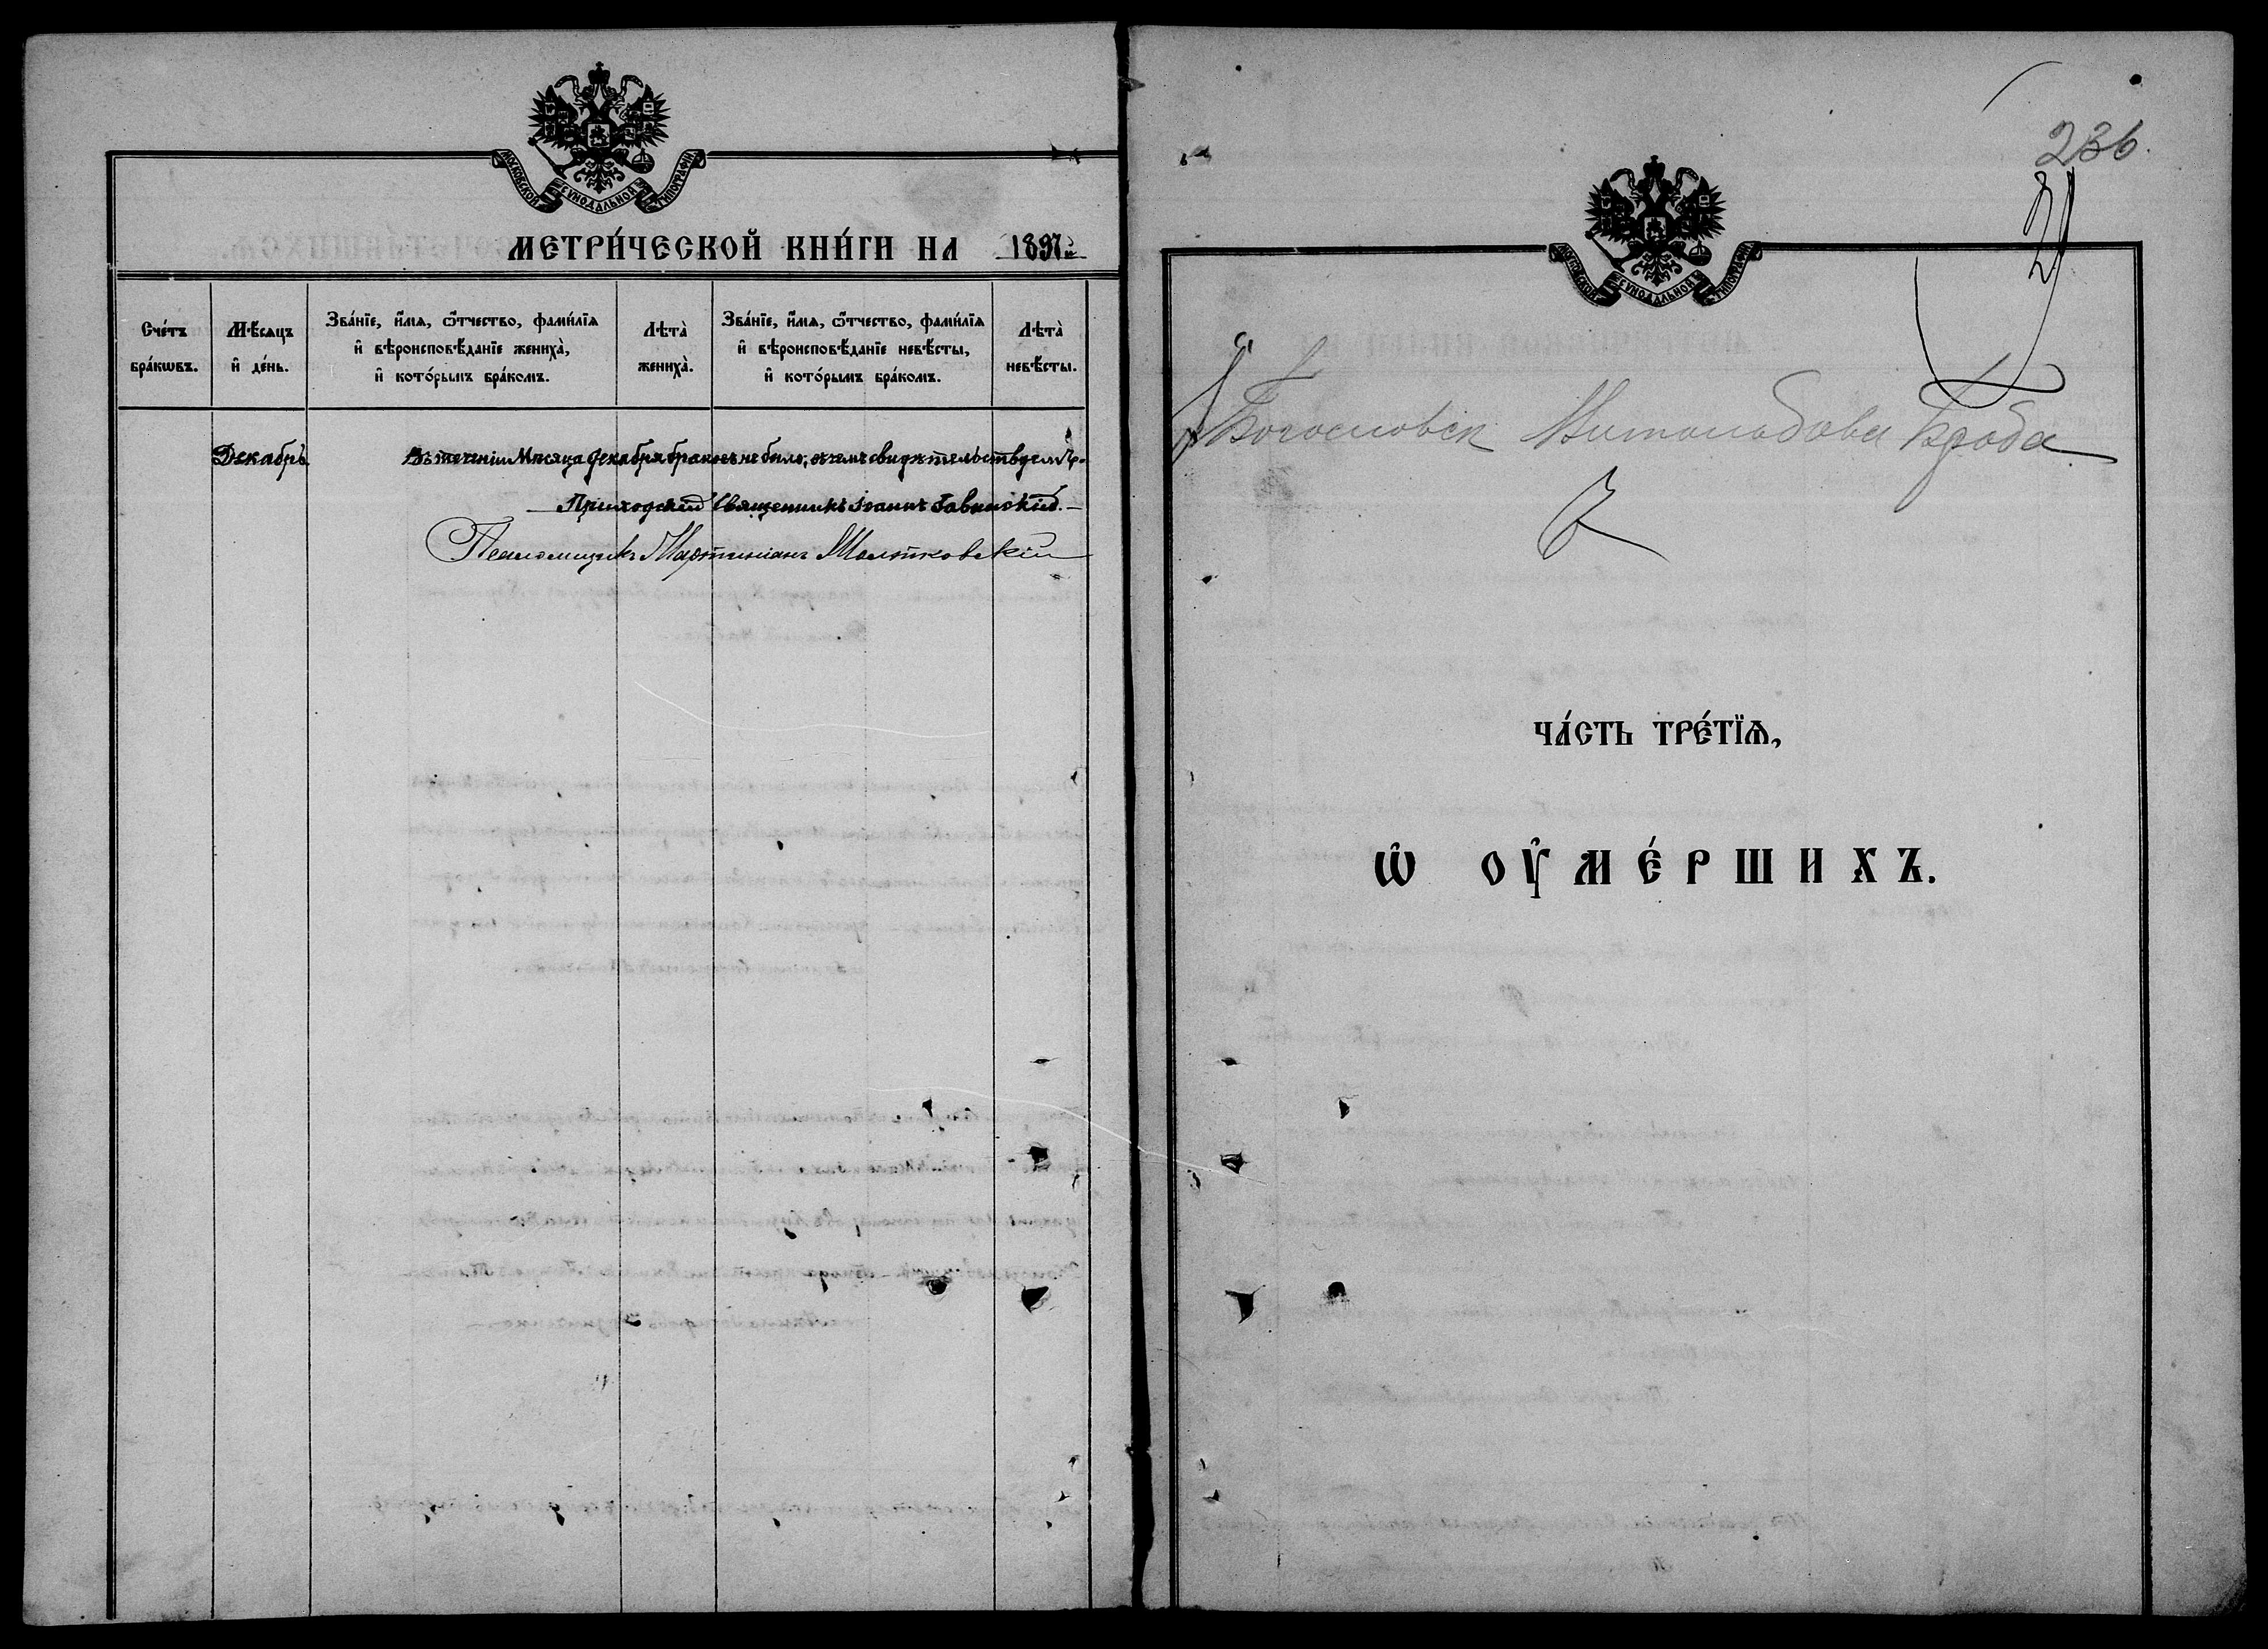 МОСКОВСКОЙ СѴНОДАЛЬНОЙ ТИПОГРАФІИ
МЕТРИ́ЧЕСКОЙ КНИ́ГИ НА 1897й
Сче́тъ бра́кωвъ.
Мѣ́сяцъ и҆ де́нь.
Зва́нїе, и҆́мѧ, ѻ҆́тчество, фами́лїѧ
и҆ вѣроисповѣ́данїе жениха̀,
и҆ кото́рымъ бра́комъ.
Лѣта̀ жениха̀.
Зва́нїе, и҆́мѧ, ѻ҆́тчество, фами́лїѧ
и҆ вѣроисповѣ́данїе невѣ́сты,
и҆ кото́рымъ бра́комъ.
Лѣта̀ невѣ́сты.
Декабрь. Въ теченіи Мѣсяца Декабря браковъ не было, въ чемъ свидѣтельствуемъ:
Приходскій Священникъ Іоаннъ
Псаломщикъ Мартиніанъ
236.
МОСКОВСКОЙ СѴНОДАЛЬНОЙ ТИПОГРАФІИ
Богословск Витольдова Брода
ЧА́СТЬ ТРЕ́ТЇѦ,
Ѡ҆ ОУ҆МЕ́РШИХЪ.